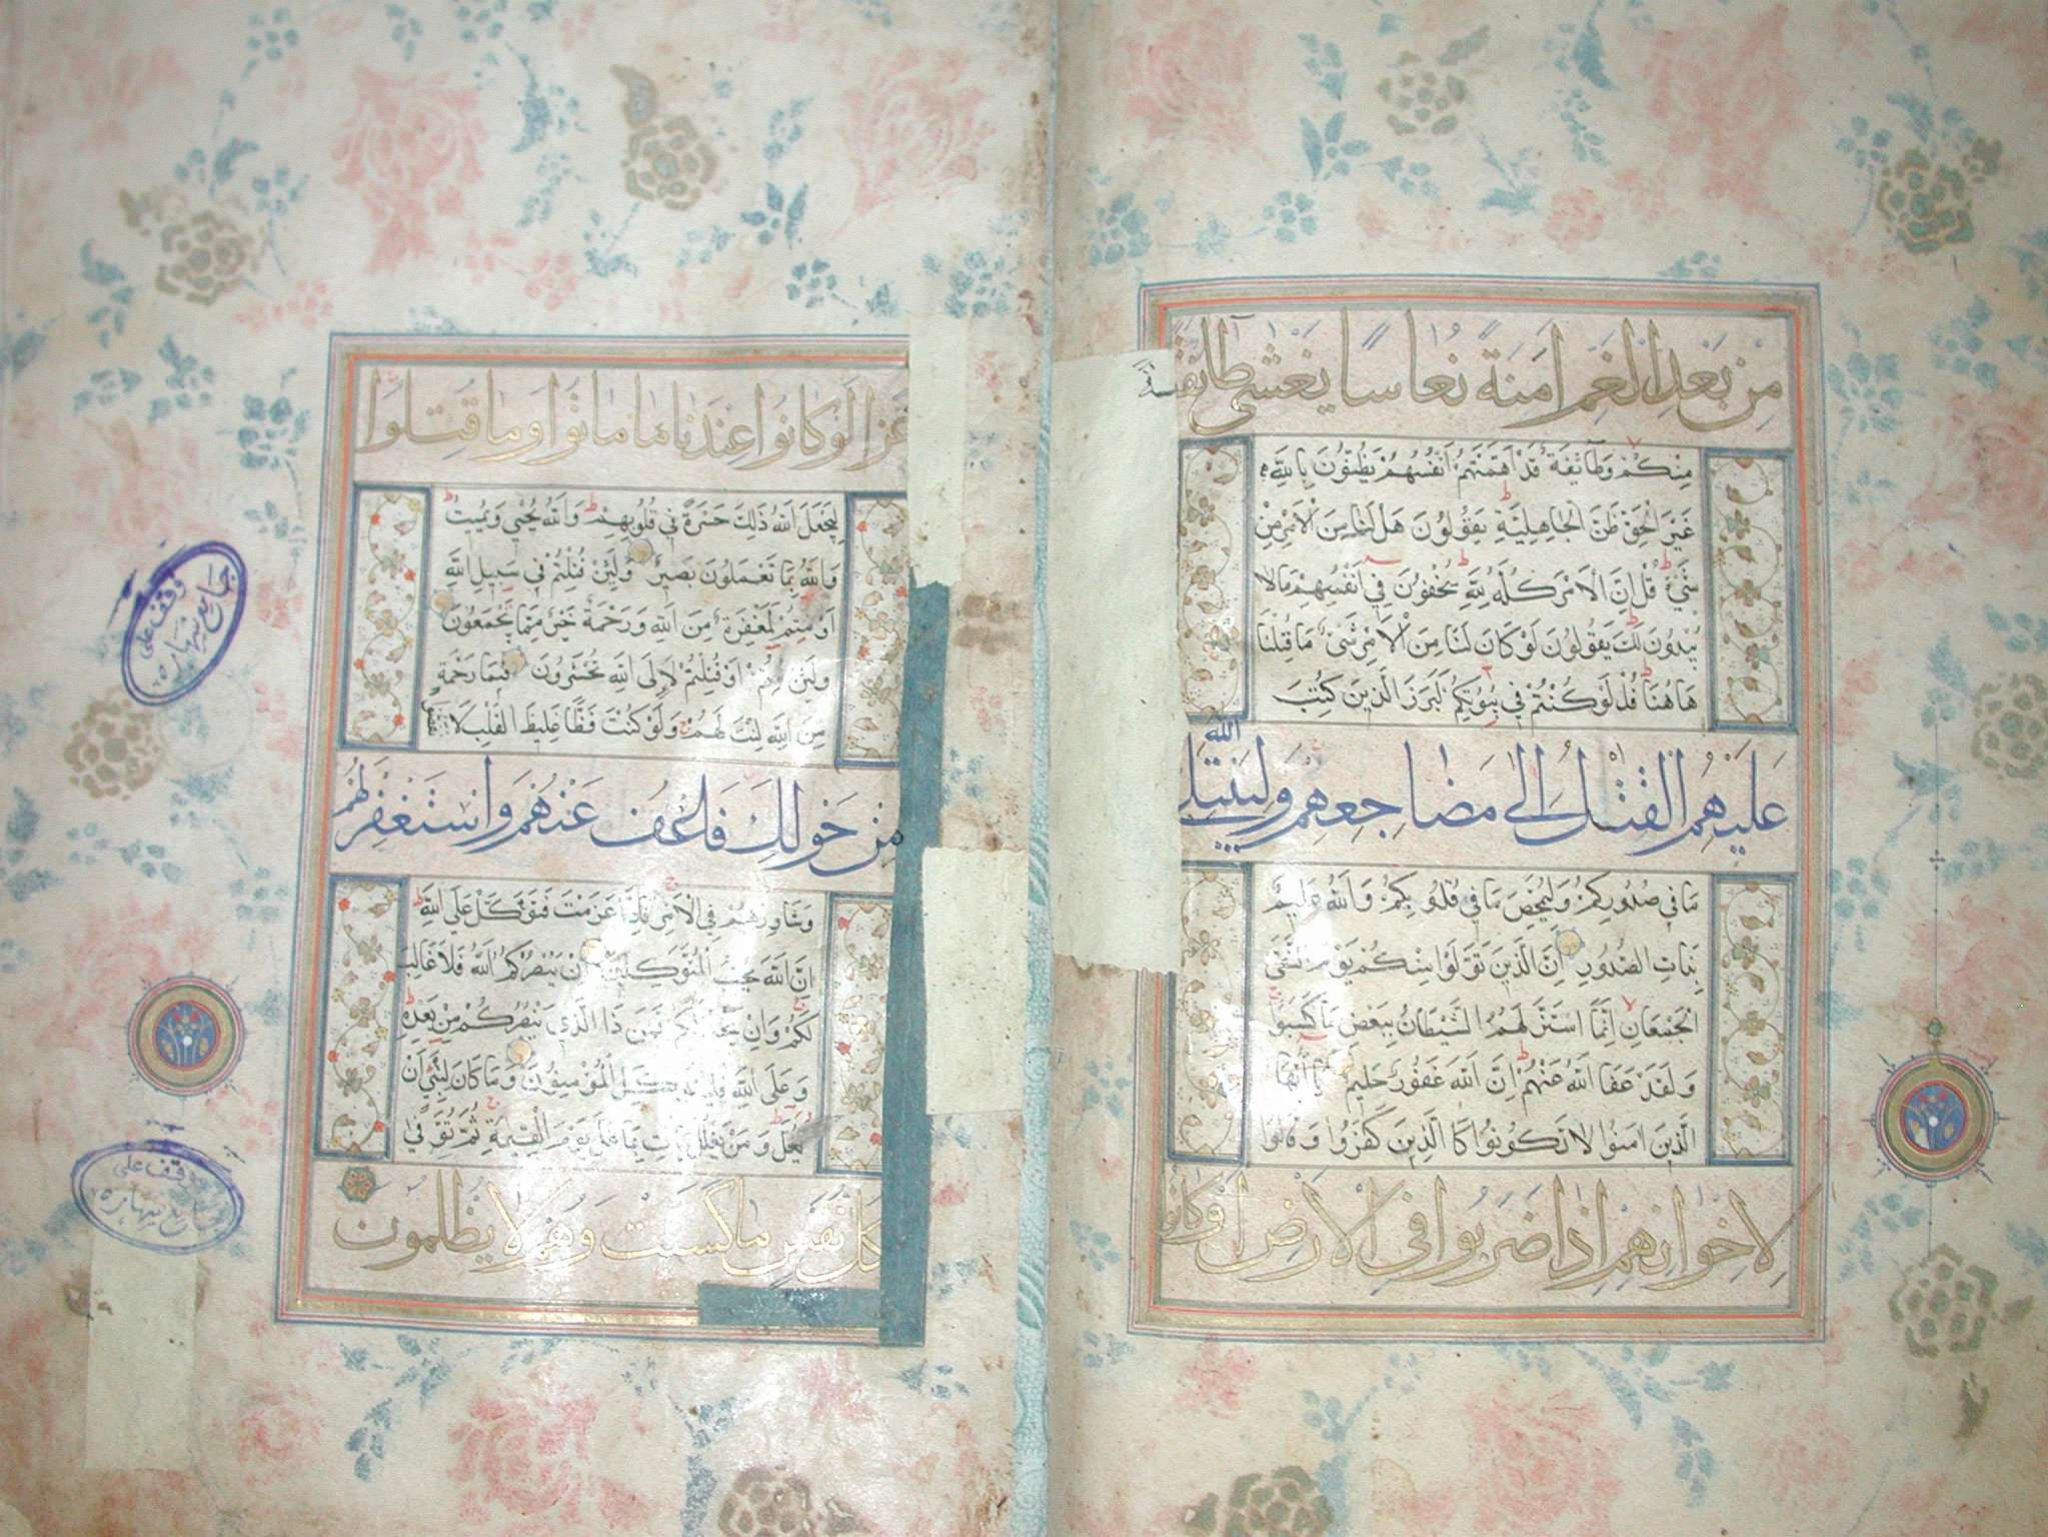 مِنْ بَعْدِ الْغَمِّ اَمَنَةً نُعَاسًا يَغْشٰى طَائِفَةً
مِنْكُمْ وَطَآئِفَةٌ قَدْ اَهَمَّتْهُمْ اَنْفُسُهُمْ يَظُنُّونَ بِاللّٰهِ
غَيْرَ الْحَقِّ ظَنَّ الْجَاهِلِيَّةِ يَقُولُونَ هَلْ لَنَا مِنَ الْاَمْرِ مِنْ
شَيْءٍ قُلْ اِنَّ الْاَمْرَ كُلَّهُ لِلّٰهِ يُخْفُونَ فِي اَنْفُسِهِمْ مَا لَا
يُبْدُونَ لَكَ يَقُولُونَ لَوْ كَانَ لَنَا مِنَ الْاَمْرِ شَيْءٌ مَا قُتِلْنَا
هَاهُنَا قُلْ لَوْ كُنْتُمْ فِي بُيُوتِكُمْ لَبَرَزَ الَّذِينَ كُتِبَ
عَلَيْهِمُ الْقَتْلُ اِلٰى مَضَاجِعِهِمْ وَلِيَبْتَلِيَ اللّٰهُ
مَا فِي صُدُورِكُمْ وَلِيُمَحِّصَ مَا فِي قُلُوبِكُمْ وَاللّٰهُ عَلِيمٌ
بِذَاتِ الصُّدُورِ اِنَّ الَّذِينَ تَوَلَّوْا مِنْكُمْ يَوْمَ الْتَقَى
الْجَمْعَانِ اِنَّمَا اسْتَزَلَّهُمُ الشَّيْطَانُ بِبَعْضِ مَا كَسَبُوا
وَلَقَدْ عَفَا اللّٰهُ عَنْهُمْ اِنَّ اللّٰهَ غَفُورٌ حَلِيمٌ يَا اَيُّهَا
الَّذِينَ اٰمَنُوا لَا تَكُونُوا كَالَّذِينَ كَفَرُوا وَقَالُوا
لِاِخْوَانِهِمْ اِذَا ضَرَبُوا فِي الْاَرْضِ اَوْ كَانُوا
غُزًّا لَوْ كَانُوا عِنْدَنَا مَا مَاتُوا وَمَا قُتِلُوا
لِيَجْعَلَ اللّٰهُ ذٰلِكَ حَسْرَةً فِي قُلُوبِهِمْ وَاللّٰهُ يُحْيِي وَيُمِيتُ
وَاللّٰهُ بِمَا تَعْمَلُونَ بَصِيرٌ وَلَئِنْ قُتِلْتُمْ فِي سَبِيلِ اللّٰهِ
اَوْ مُتُّمْ لَمَغْفِرَةٌ مِنَ اللّٰهِ وَرَحْمَةٌ خَيْرٌ مِمَّا يَجْمَعُونَ
وَلَئِنْ مُتُّمْ اَوْ قُتِلْتُمْ لَاِلَى اللّٰهِ تُحْشَرُونَ فَبِمَا رَحْمَةٍ
مِنَ اللّٰهِ لِنْتَ لَهُمْ وَلَوْ كُنْتَ فَظًّا غَلِيظَ الْقَلْبِ لَانْفَضُّوا
مِنْ حَوْلِكَ فَاعْفُ عَنْهُمْ وَاسْتَغْفِرْ لَهُمْ
وَشَاوِرْهُمْ فِي الْاَمْرِ فَاِذَا عَزَمْتَ فَتَوَكَّلْ عَلَى اللّٰهِ
اِنَّ اللّٰهَ يُحِبُّ الْمُتَوَكِّلِينَ اِنْ يَنْصُرْكُمُ اللّٰهُ فَلَا غَالِبَ
لَكُمْ وَاِنْ يَخْذُلْكُمْ فَمَنْ ذَا الَّذِي يَنْصُرُكُمْ مِنْ بَعْدِهِ
وَعَلَى اللّٰهِ فَلْيَتَوَكَّلِ الْمُؤْمِنُونَ وَمَا كَانَ لِنَبِيٍّ اَنْ
يَغُلَّ وَمَنْ يَغْلُلْ يَأْتِ بِمَا غَلَّ يَوْمَ الْقِيٰمَةِ ثُمَّ تُوَفّٰى
كُلُّ نَفْسٍ مَا كَسَبَتْ وَهُمْ لَا يُظْلَمُونَ
وقف على
جامع
وقف على
جامع